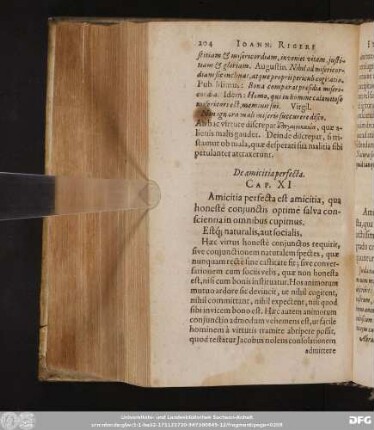 204 IOANN. RIGERI
stitiam & misericordiam, inveniet vitam, justi-
tiam & gloriam. Augustin. Nihil ad misericor-
diam sic inclinat, atque proprii periculi cogitatio.
Pub. Mimus: Bona comparat præsidia miseri-
cordia. Idem: Homo, qui in homine calamitoso
misericors est, meminit sui. Virgil.
Non ignara mali miseris succurrere disco.
Ab hac virtute discrepat, quæ a-
lienis malis gaudet. Deinde discrepat, si tri-
stamur ob mala, quæ desperati sua malitia sibi
petulanter attraxerunt.
De amicitia perfecta.
CAP. XI
Amicitia perfecta est amicitia, qua
honestè conjunctis optimè salva con-
scientia in omnibus cupimus.
Estq; naturalis, aut socialis.
Hæc virtus honestè conjunctos requirit,
sive conjunctionem naturalem spectes, quæ
nunquam rectè sine castitate fit; sive conver-
sationem cum sociis velis, quæ non honesta
est, nisi cum bonis instituatur. Hos animorum
mutuo ardore sic devincit, ut nihil cogitent,
nihil committant, nihil expectent, nisi quod
sibi invicem bono est. Hæc autem animorum
conjunctio admodum vehemens est, ut facile
hominem à virtutis tramite abripere possit,
quod testatur Jacobus nolens consolationem
admittere
Universitäts- und Landesbibliothek Sachsen-Anhalt
DFG